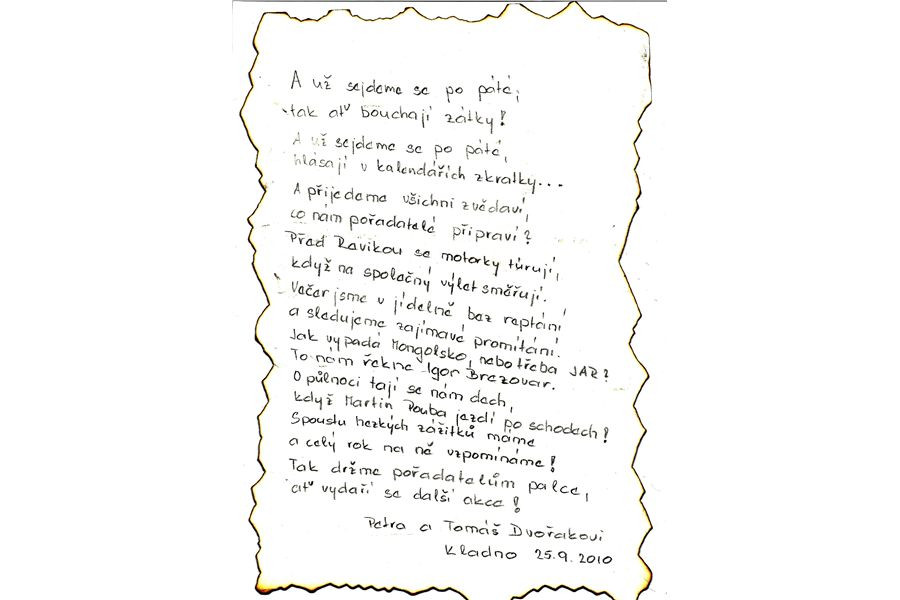 A už sejdeme se po páté,
tak ať bouchají zátky!
A už sejdeme se po páté,
hlásají v kalendářích zkratky...
A přijedeme všichni zvědaví,
co nám pořadatelé připraví?
Před Ravikou se motorky túrují,
když na společný výlet směřují.
Večer jsme v jídelně bez reptání
a sledujeme zajímavé promítání.
Jak vypadá Mongolsko, nebo třeba JAR?
To nám řekne Igor Brezovar.
O půlnoci tají se nám dech,
když Martin Pouba jezdí po schodech!
Spoustu hezkých zážitků máme
a celý rok na ně vzpomínáme!
Tak držme pořadatelům palce,
ať vydaří se další akce!
Petra a Tomáš Dvořákovi
Kladno 25.9.2010